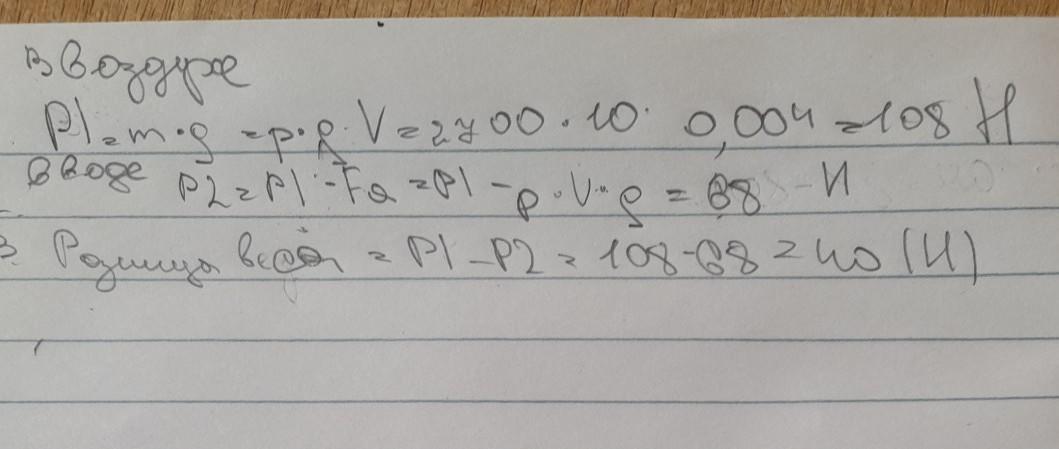 В воздухе
P1=m·g=p·g·V=2700·10·0,004=108 Н
В воде P2=P1-Fa=P1-p·V·g=68-Н
3. Разница весов = P1-P2=108-68=40 (Н)